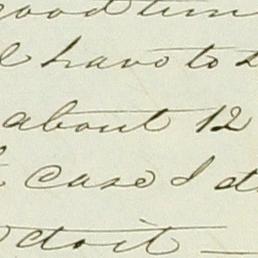 good tim
have to
about 12
case I d
do it —